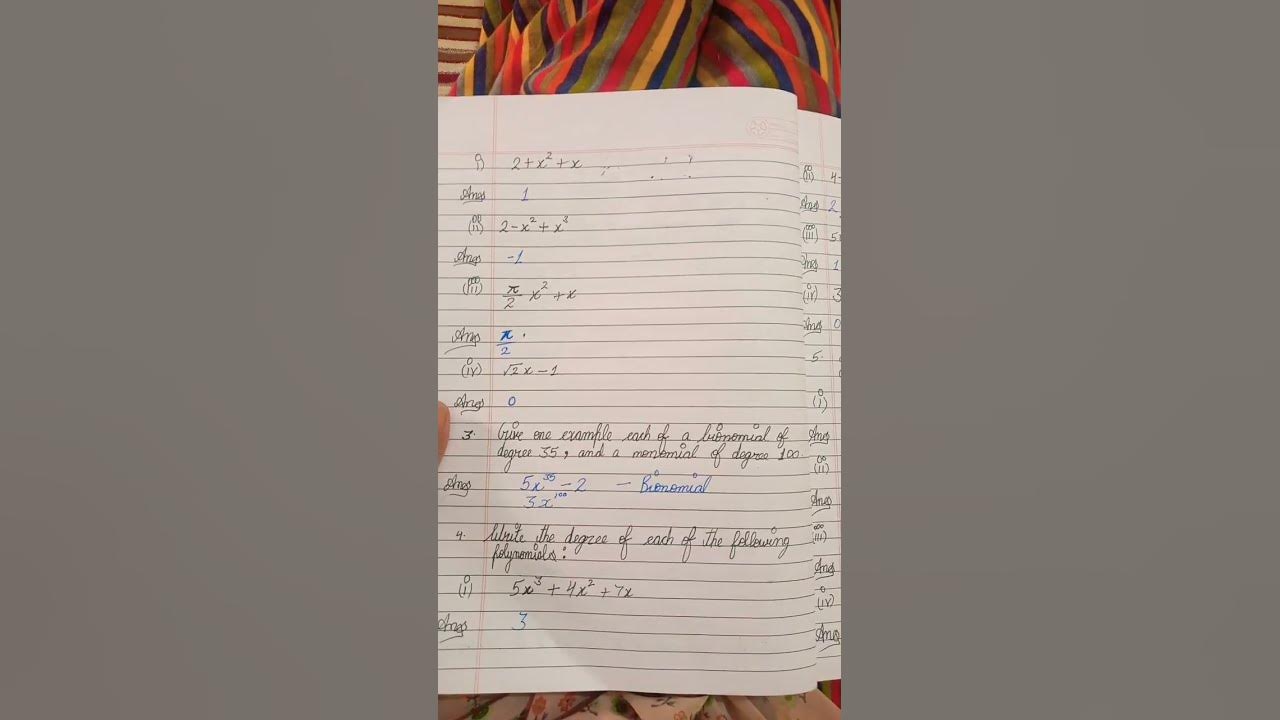 i) 2+x²+x
Ans 1
(ii) 2-x²+x³
Ans -1
(iii) π/2 x²+x
Ans π/2 .
(iv) √2x-1
Ans 0
3. Give one example each of a binomial of
degree 35, and a monomial of degree 100.
Ans 5x³⁵-2 - Binomial
3x¹⁰⁰
4. Write the degree of each of the following
polynomials:
(i) 5x³+4x²+7x
Ans 3
(ii) 4-
Ans 2
(iii) 5
Ans 1
(iv) 3
Ans 0
5.
(i)
Ans
(ii)
Ans
(iii)
Ans
(iv)
Ans